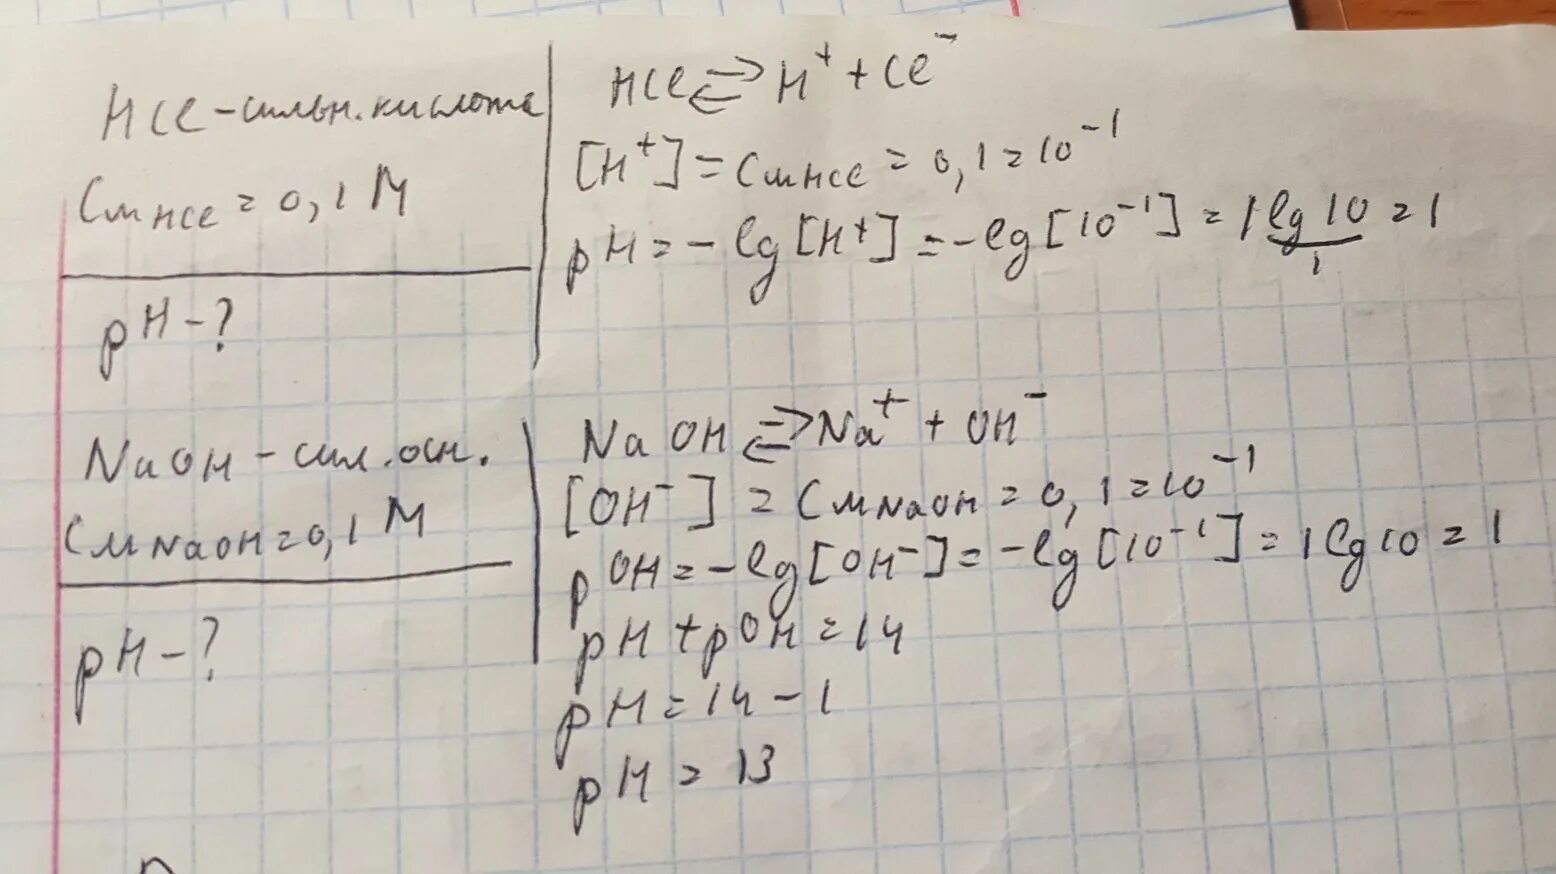 HCl - сильн. кислота
CмHCl = 0,1 M
pH - ?
HCl ⇄ H⁺ + Cl⁻
[H⁺] = CмHCl = 0,1 = 10⁻¹
pH = - lg [H⁺] = - lg [10⁻¹] = 1 lg 10 = 1
1
NaOH - сил. осн.
CмNaOH = 0,1 M
pH - ?
NaOH ⇄ Na⁺ + OH⁻
[OH⁻] = CмNaOH = 0,1 = 10⁻¹
pOH = - lg [OH⁻] = - lg [10⁻¹] = 1 lg 10 = 1
pH + pOH = 14
pH = 14 - 1
pH = 13